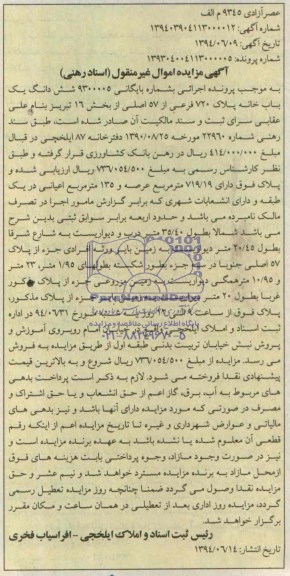 عصرآزادی ۹۳۴۵ م الف
شماره آگهی: ۱۳۹۴۰۳۹۰۴۱۱۳۰۰۰۰۱۲
تاریخ آگهی: ۱۳۹۴/۰۶/۰۹
شماره پرونده: ۱۳۹۳۰۴۰۰۴۱۱۳۰۰۰۰۰۵
آگهی مزایده اموال غیرمنقول (اسناد رهنی)
به موجب پرونده اجرائی بشماره بایگانی ۹۳۰۰۰۰۵ شش دانگ یک
باب خانه پلاک ۷۲۰ فرعی از ۵۷ اصلی از بخش ۱۶ تبریز بنام علی
عقابی سرای ثبت و سند مالکیت آن صادر شده است، طبق سند
رهنی شماره ۲۲۹۶۰ مورخه ۱۳۹۰/۰۸/۲۵ دفترخانه ۸۷ ایلخچی در قبال
مبلغ ۴۱۴/۰۰۰/۰۰۰ ریال در رهن بانک کشاورزی قرار گرفته و طبق
نظر کارشناس رسمی به مبلغ ۷۳۶/۰۵۴/۵۰۰ ریال ارزیابی شده و
پلاک فوق دارای ۷۱۹/۱۹ مترمربع عرصه و ۱۳۵ مترمربع اعیانی در یک
طبقه و دارای انشعابات شهری که برابر گزارش مامور اجرا در تصرف
مالک نامبرده می باشد و حدود اربعه برابر سوابق ثبتی بدین شرح
می باشد شمالا بطول ۳۵/۴۰ متر درب و دیواریست به شارع شرقا
بطول ۲۰/۴۵ متر دیوار به زمین باير ورثه مرادی جزء از پلاک
۵۷ اصلی جنوبا در سه جزء بطور شکسته بطولهای ۱/۹۵ متر، ۲۳ متر
و ۱۰/۹۵ مترهمگی دیواریست به زمین مزروعی جزء از پلاک مذکور
غربا بطول ۲۰ متر جزء از پلاک مذکور،
پلاک فوق از ساعت ۹ مورخ ۹۴/۰۶/۳۱ در اداره
ثبت اسناد و املاک ایلخچی واقع در امام روبروی آموزش و
پرورش نبش خیابان تربیت بدنی طبقه اول از طریق مزایده به فروش
می رسد. مزایده از مبلغ ۷۳۶/۰۵۴/۵۰۰ ریال شروع و به بالاترین قیمت
پیشنهادی نقدا فروخته می شود. لازم به ذکر است پرداخت بدهی
های مربوط به آب، برق، گاز اعم از حق انشعاب و یا حق اشتراک و
مصرف در صورتی که مورد مزایده دارای آنها باشد و نیز بدهی های
مالیاتی و عوارض شهرداری و غیره تا تاریخ مزایده اعم از اینکه رقم
قطعی آن معلوم شده یا نشده باشد به عهده برنده مزایده است و
نیز در صورت وجود مازاد، وجوه پرداختی بابت هزینه های فوق
ازمحل مازاد به برنده مزایده مسترد خواهد شد و نیم عشر و حق
مزایده نقدا وصول می گردد ضمنا چنانچه روز مزایده تعطیل رسمی
گردد، مزایده روز اداری بعد از تعطیلی در همان ساعت و مکان مقرر
برگزار خواهد شد.
رئیس ثبت اسناد و املاک ایلخچی - افراسیاب فخری
تاریخ انتشار: ۱۳۹۴/۰۶/۱۴